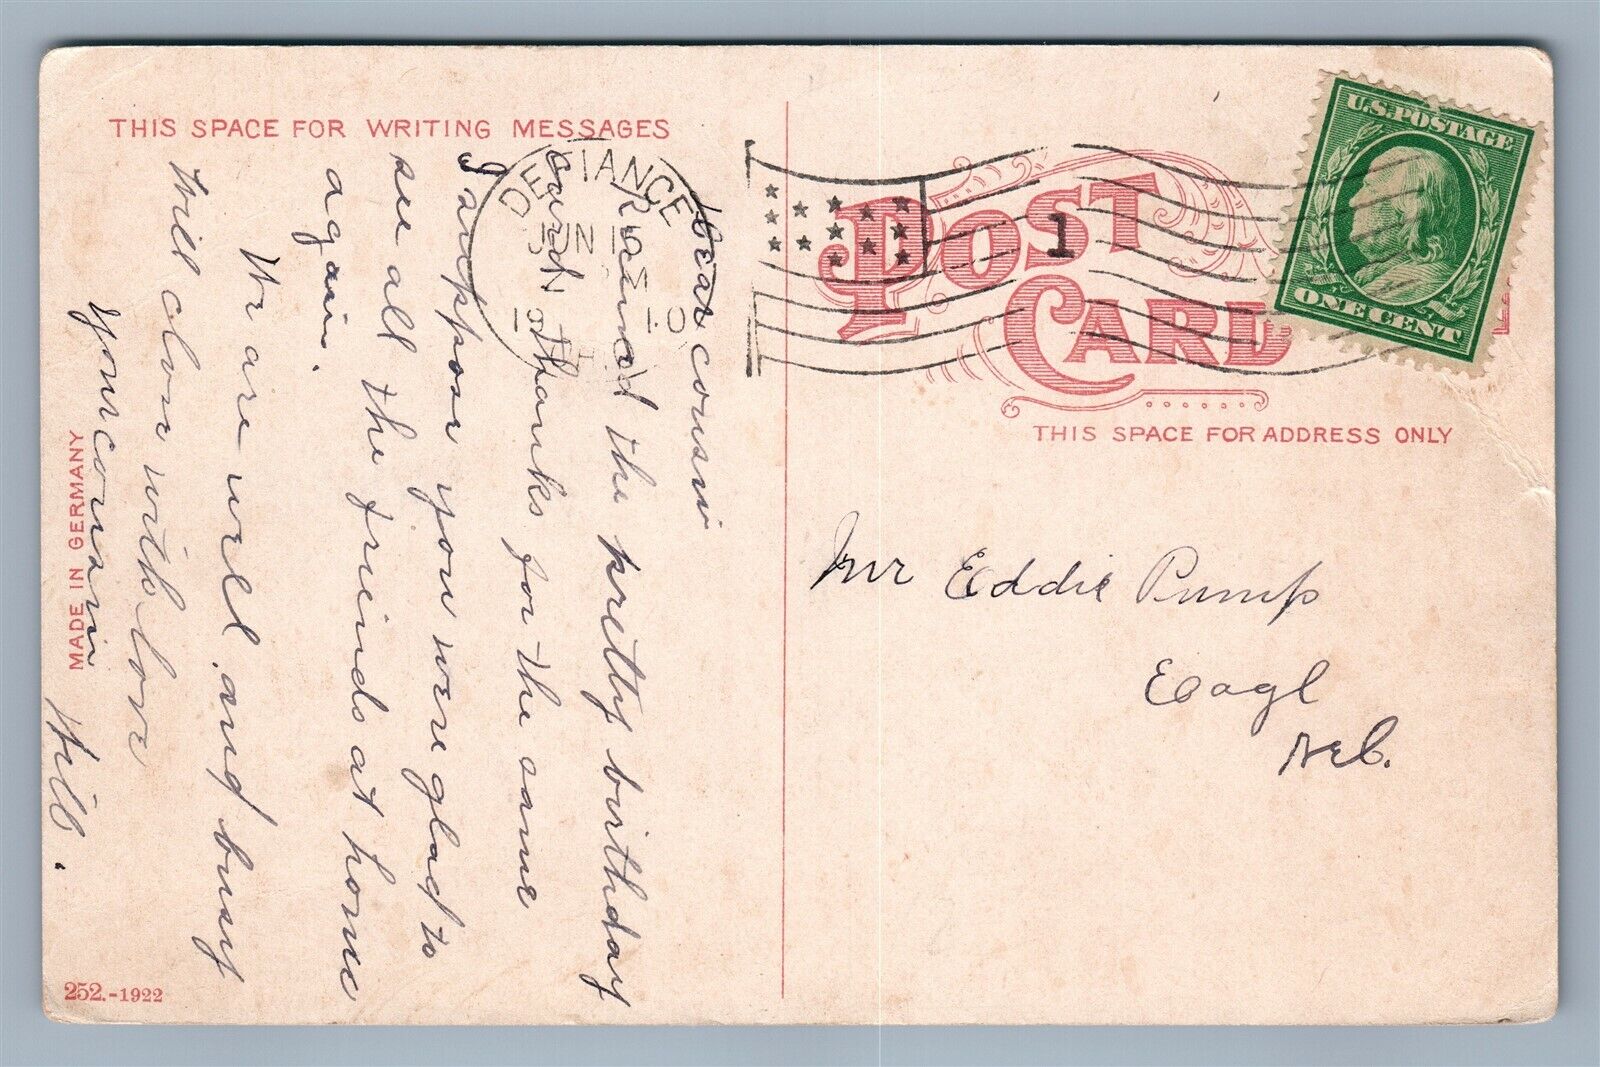 THIS SPACE FOR WRITING MESSAGES
Dear cousin
Recived the pretty birthday
card Thanks for the same
I suppose you were glad to
see all the friends at home
again.
We are well and busy
Will close with love
Your cousin Will.
MADE IN GERMANY
252.-1922
DEFIANCE
JUN 15
1910
1
U.S. POSTAGE
ONE CENT
POST
CARD
THIS SPACE FOR ADDRESS ONLY
Mr Eddie Pump
Eagl
Neb.